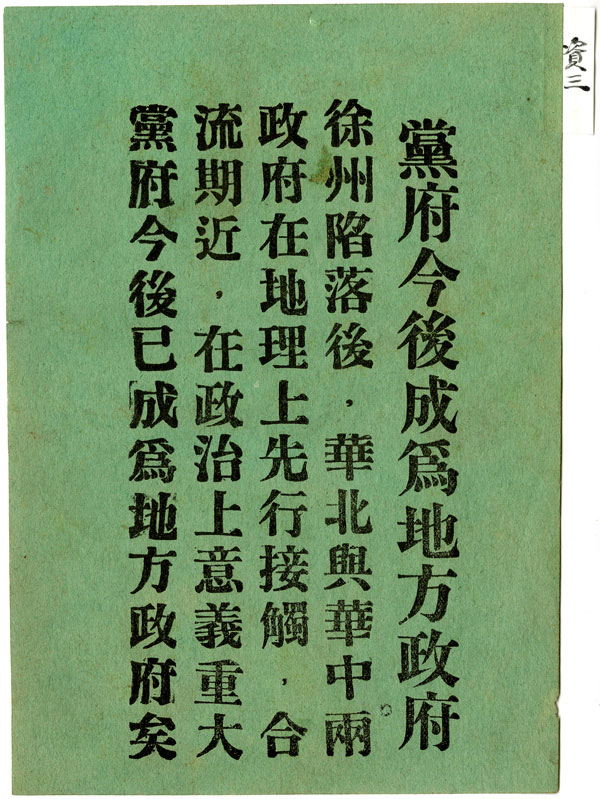 資三
黨府今後成爲地方政府
徐州陷落後，華北與華中兩
政府在地理上先行接觸，合
流期近，在政治上意義重大
黨府今後已成爲地方政府矣